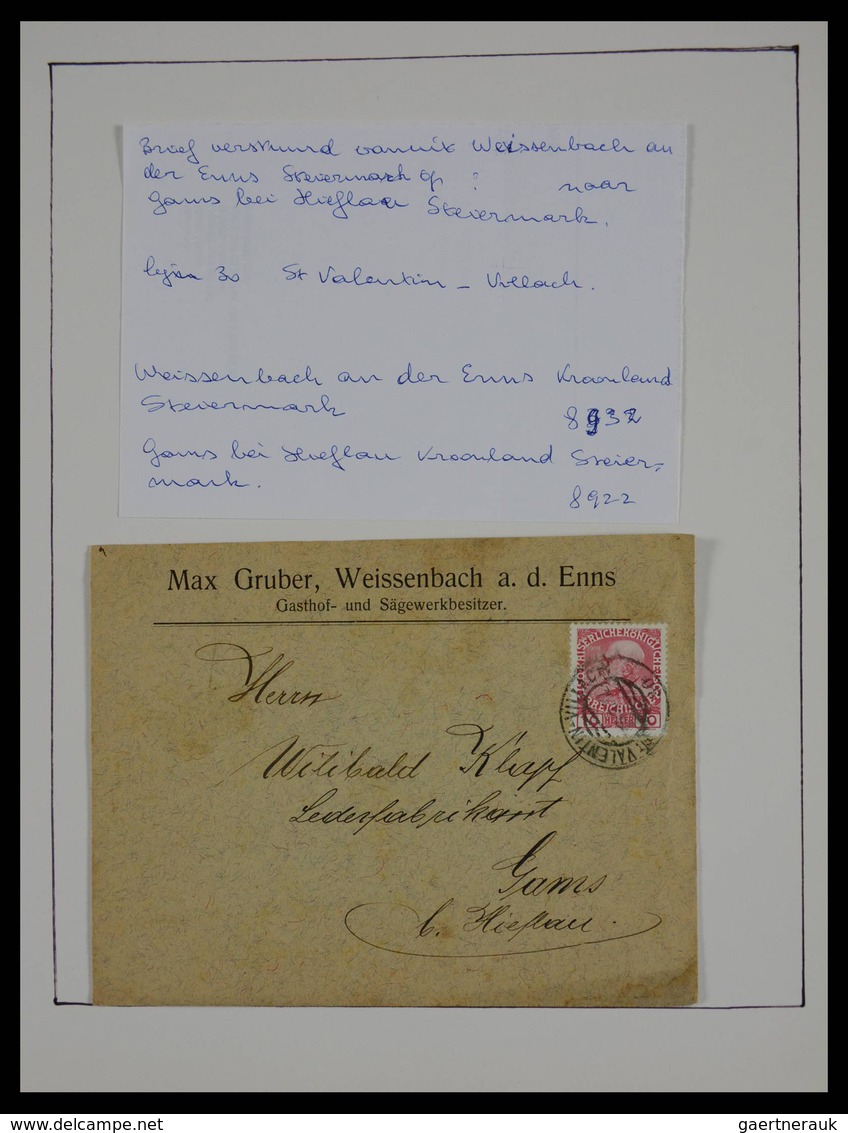 Brief verstuurd vanuit Weissenbach an
der Enns Steiermark op ? naar
Gams bei Hieflau Steiermark.
lijn 30 St Valentin - Villach.
Weissenbach an der Enns Kroonland
Steiermark 8932
Gams bei Hieflau Kroonland Steier-
mark. 8922
Max Gruber, Weissenbach a. d. Enns
Gasthof- und Sägewerkbesitzer.
Herrn
Wilibald Klapf
Lederfabrikant
Gams
b. Hieflau.
HELLER
ST. VALENTIN-VILLACH
gaertnerauk